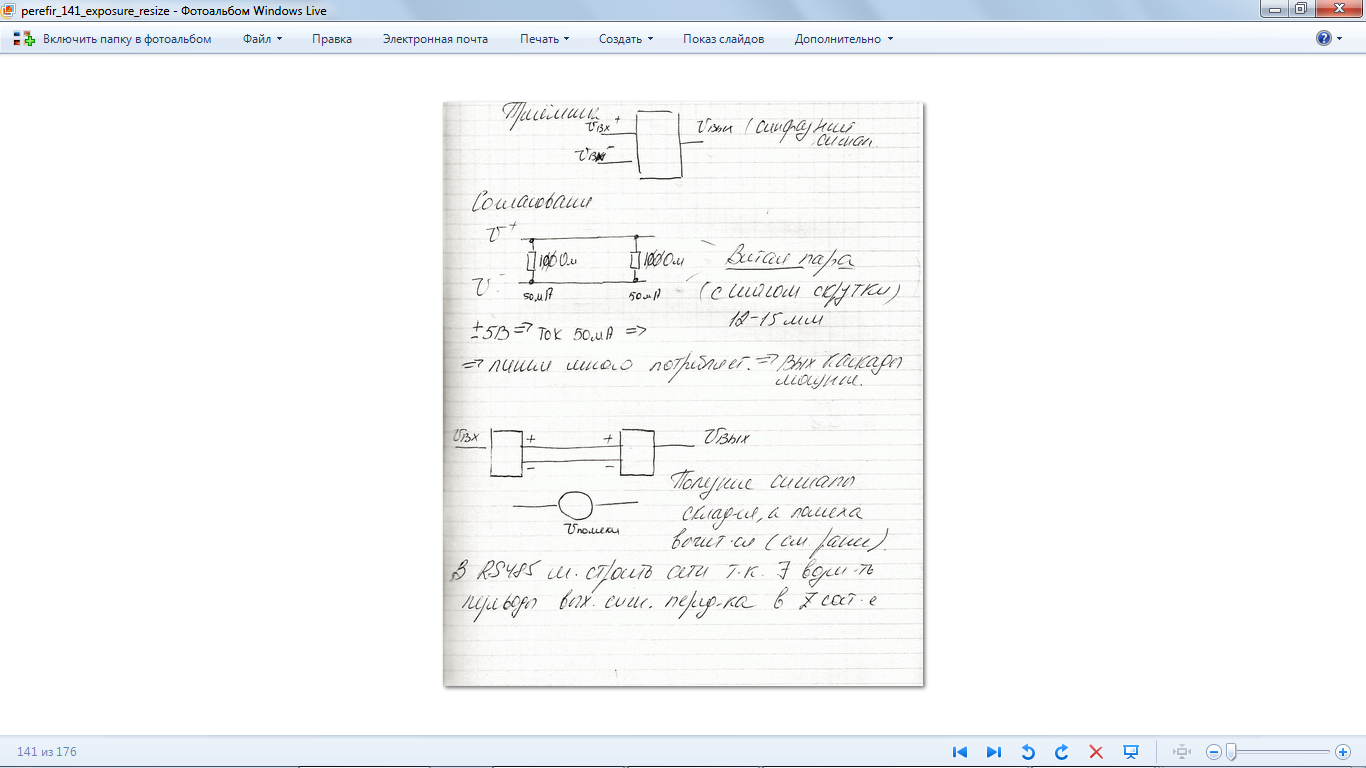 perefir_141_exposure_resize - Фотоальбом Windows Live
Включить папку в фотоальбом Файл Правка Электронная почта Печать Создать Показ слайдов Дополнительно
Приёмник
Uвх+
Uвх-
Uвых (синфазный
сигнал
Согласование
U+
100 Ом 100 Ом
U-
50мА 50мА
Витая пара
(с шагом скрутки)
12-15 мм
±5В => ток 50мА =>
=> линии много потребляет. => Вых каскады
мощные.
Uвх + + Uвых
- -
Uпомехи
Полезные сигналы
склад-ся, а помеха
вычит-ся (см. ранее).
В RS485 м. строить сети т.к. ∃ возм-ть
вых. сигн. перед-ка в Z сост-е
141 из 176